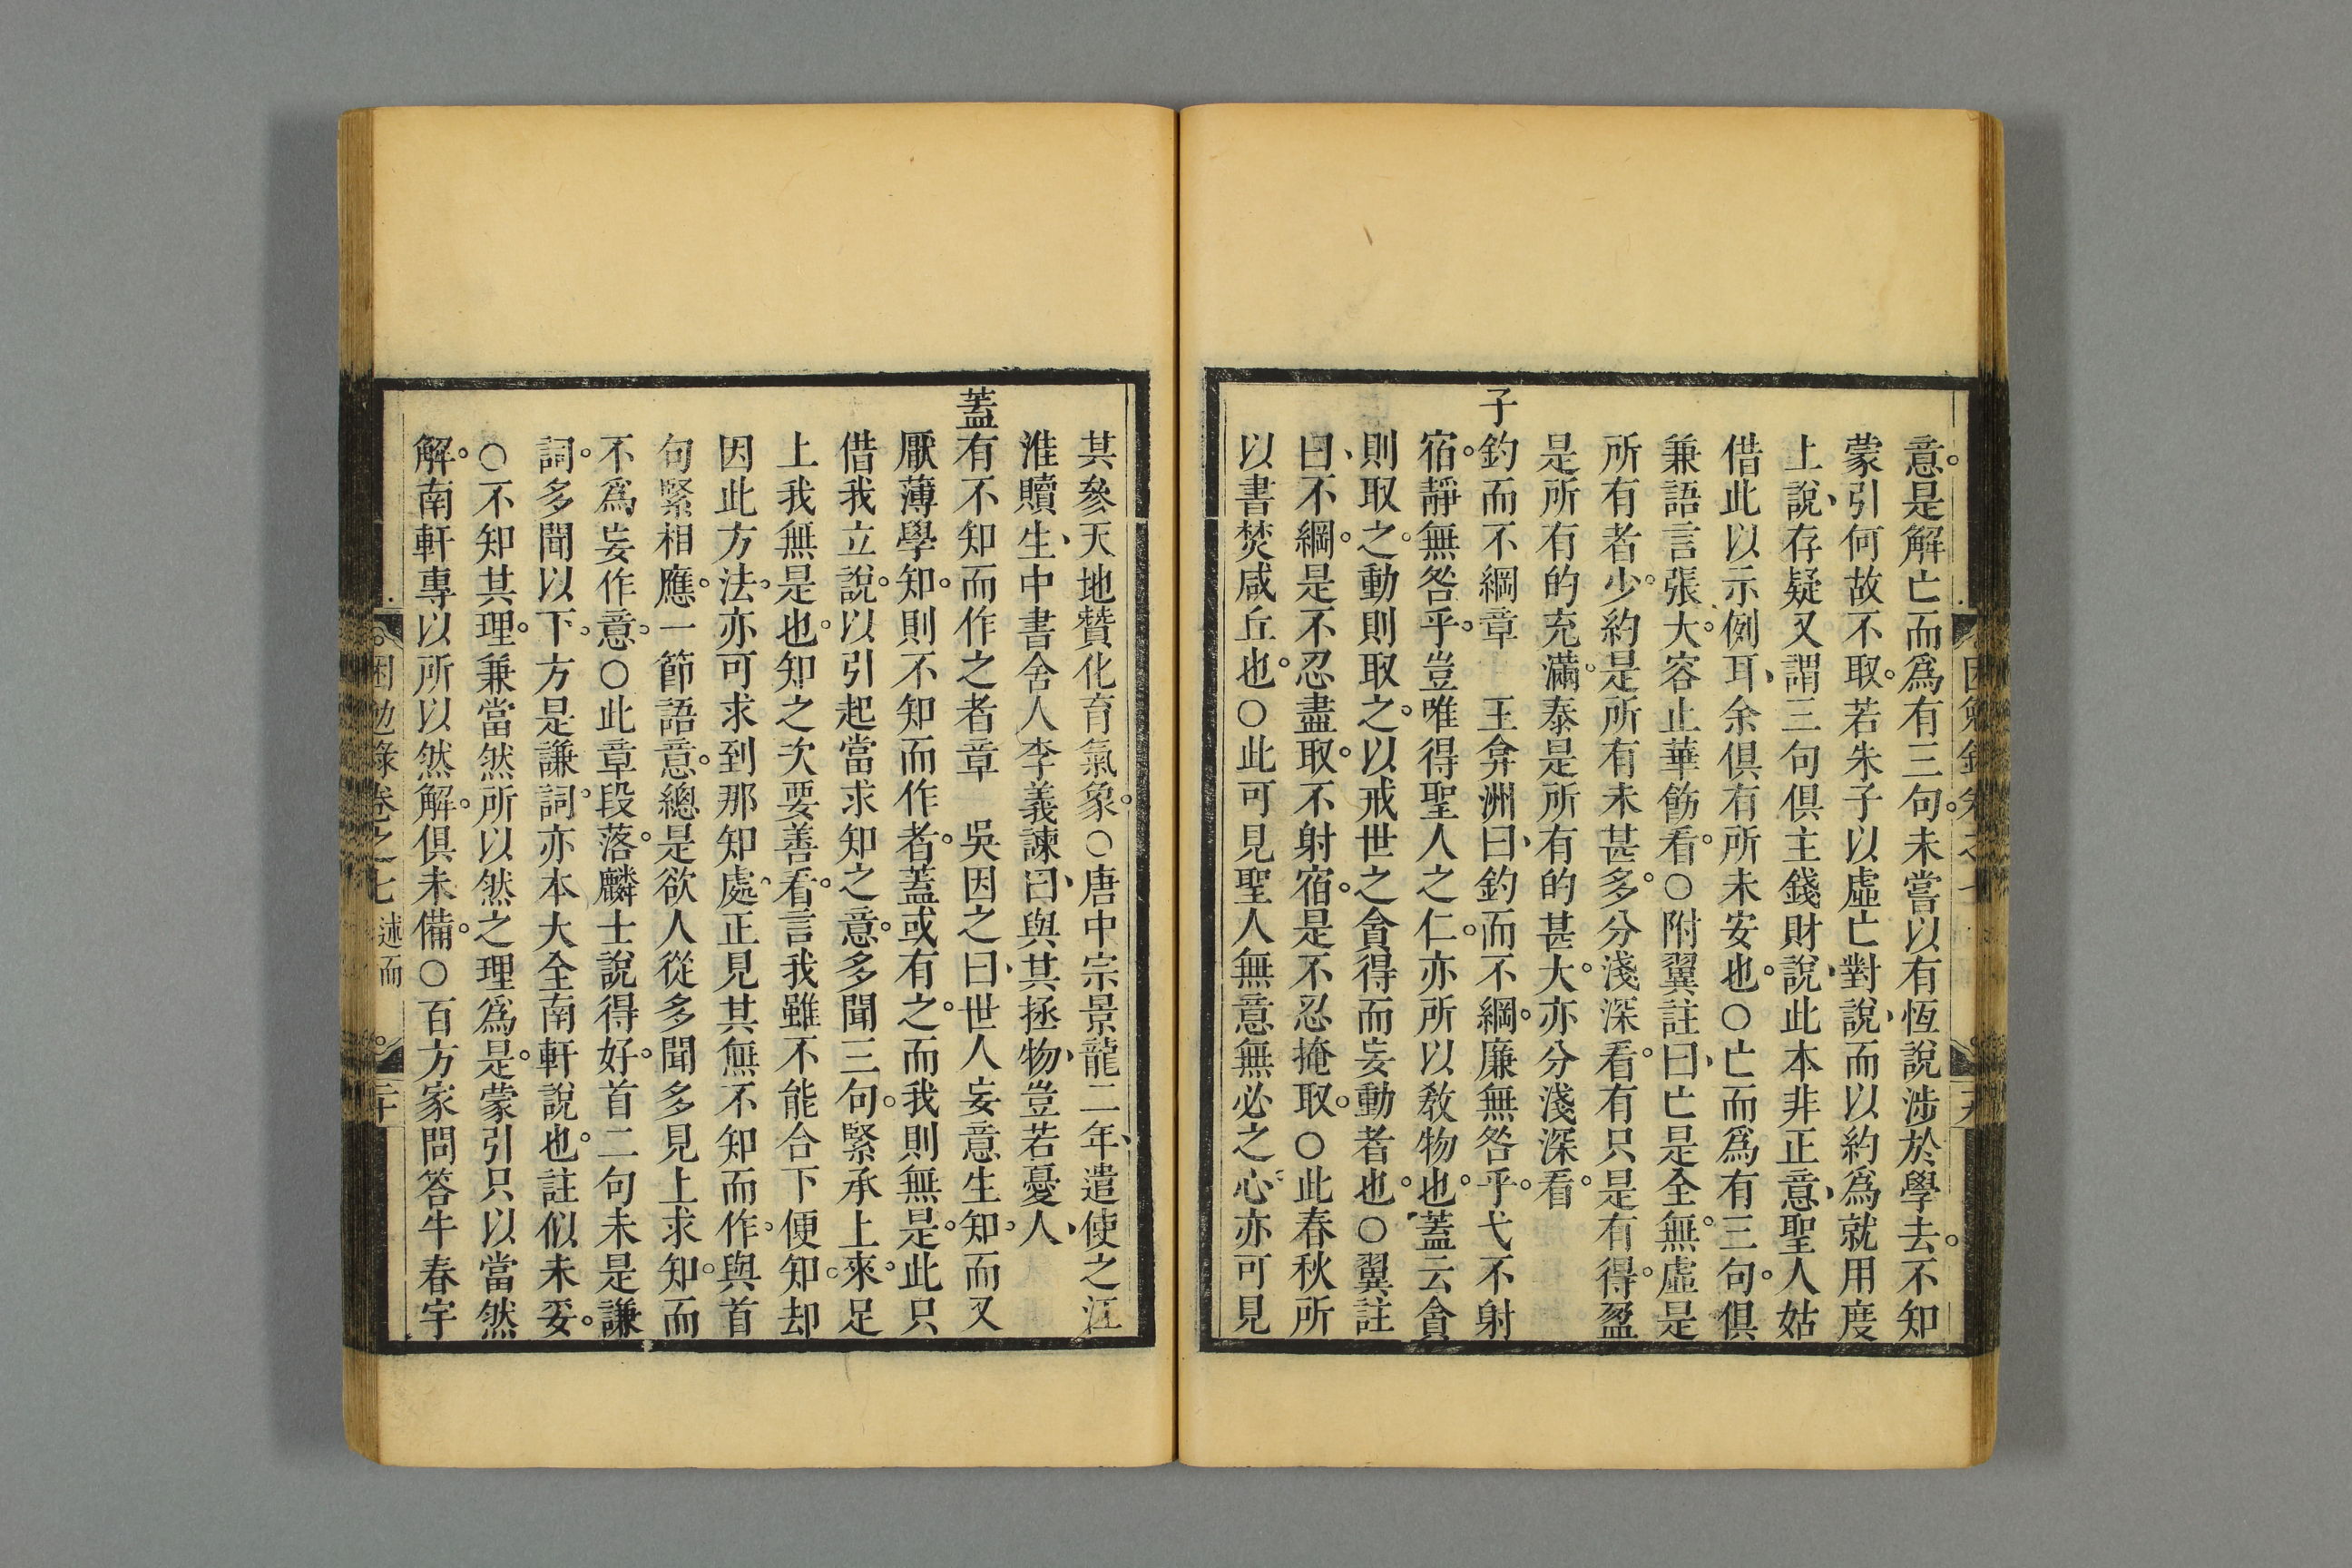 意。是解亡而爲有三句。未嘗以有恆說涉於學去。不知
蒙引何故不取。若朱子以虛亡對說、而以約爲就用度
上說、存疑又謂三句俱主錢財說、此本非正意、聖人姑
借此以示例耳、余俱有所未安也。○亡而爲有三句。俱
兼語言張大。容止華飾看。○附翼註曰、亡是全無。虛是
所有者少。約是所有未甚多。分淺深看。有只是有得。盈
是所有的充滿。泰是所有的甚大。亦分淺深看。
子釣而不綱章　王弇洲曰、釣而不綱。廉無咎乎。弋不射
宿。靜無咎乎。豈唯得聖人之仁。亦所以敎物也。蓋云貪
則取之。動則取之。以戒世之貪得而妄動者也。○翼註
曰、不綱。是不忍盡取。不射宿。是不忍掩取。○此春秋所
以書焚咸丘也。○此可見聖人無意無必之心。亦可見
其參天地贊化育氣象。○唐中宗景龍二年、遣使之江
淮贖生、中書舍人李義諫曰、與其拯物、豈若憂人、
蓋有不知而作之者章　吳因之曰、世人妄意生知。而又
厭薄學知。則不知而作者。蓋或有之。而我則無是。此只
借我立說。以引起當求知之意。多聞三句。緊承上來。足
上我無是也。知之次要善看。言我雖不能合下便知。却
因此方法。亦可求到那知處。正見其無不知而作。與首
句緊相應。一節語意。總是欲人從多聞多見上求知。而
不爲妄作意。○此章段落。麟士說得好。首二句未是謙
詞。多聞以下。方是謙詞。亦本大全南軒說也。註似未妥。
○不知其理。兼當然所以然之理爲是。蒙引只以當然
解。南軒專以所以然解。俱未備。○百方家問答牛春宇
困勉錄卷之七　述而　二十